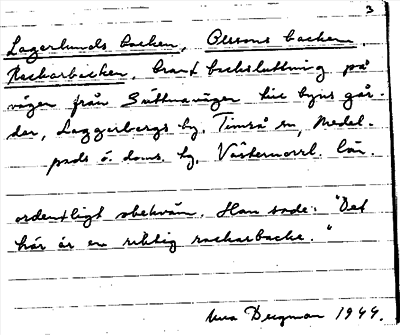 3
Lagerlunds backen, Olssons backen,
Rackarbacken, brant backsluttning på
vägen från Slättnavägen till byns går-
dar, Laggerbergs by, Timrå sn, Medel-
pads ö. doms. hg, Västernorrl. län.
ordentligt obekväm. Han sade: "Det
här är en riktig rackarbacke."
Bregman 1944.